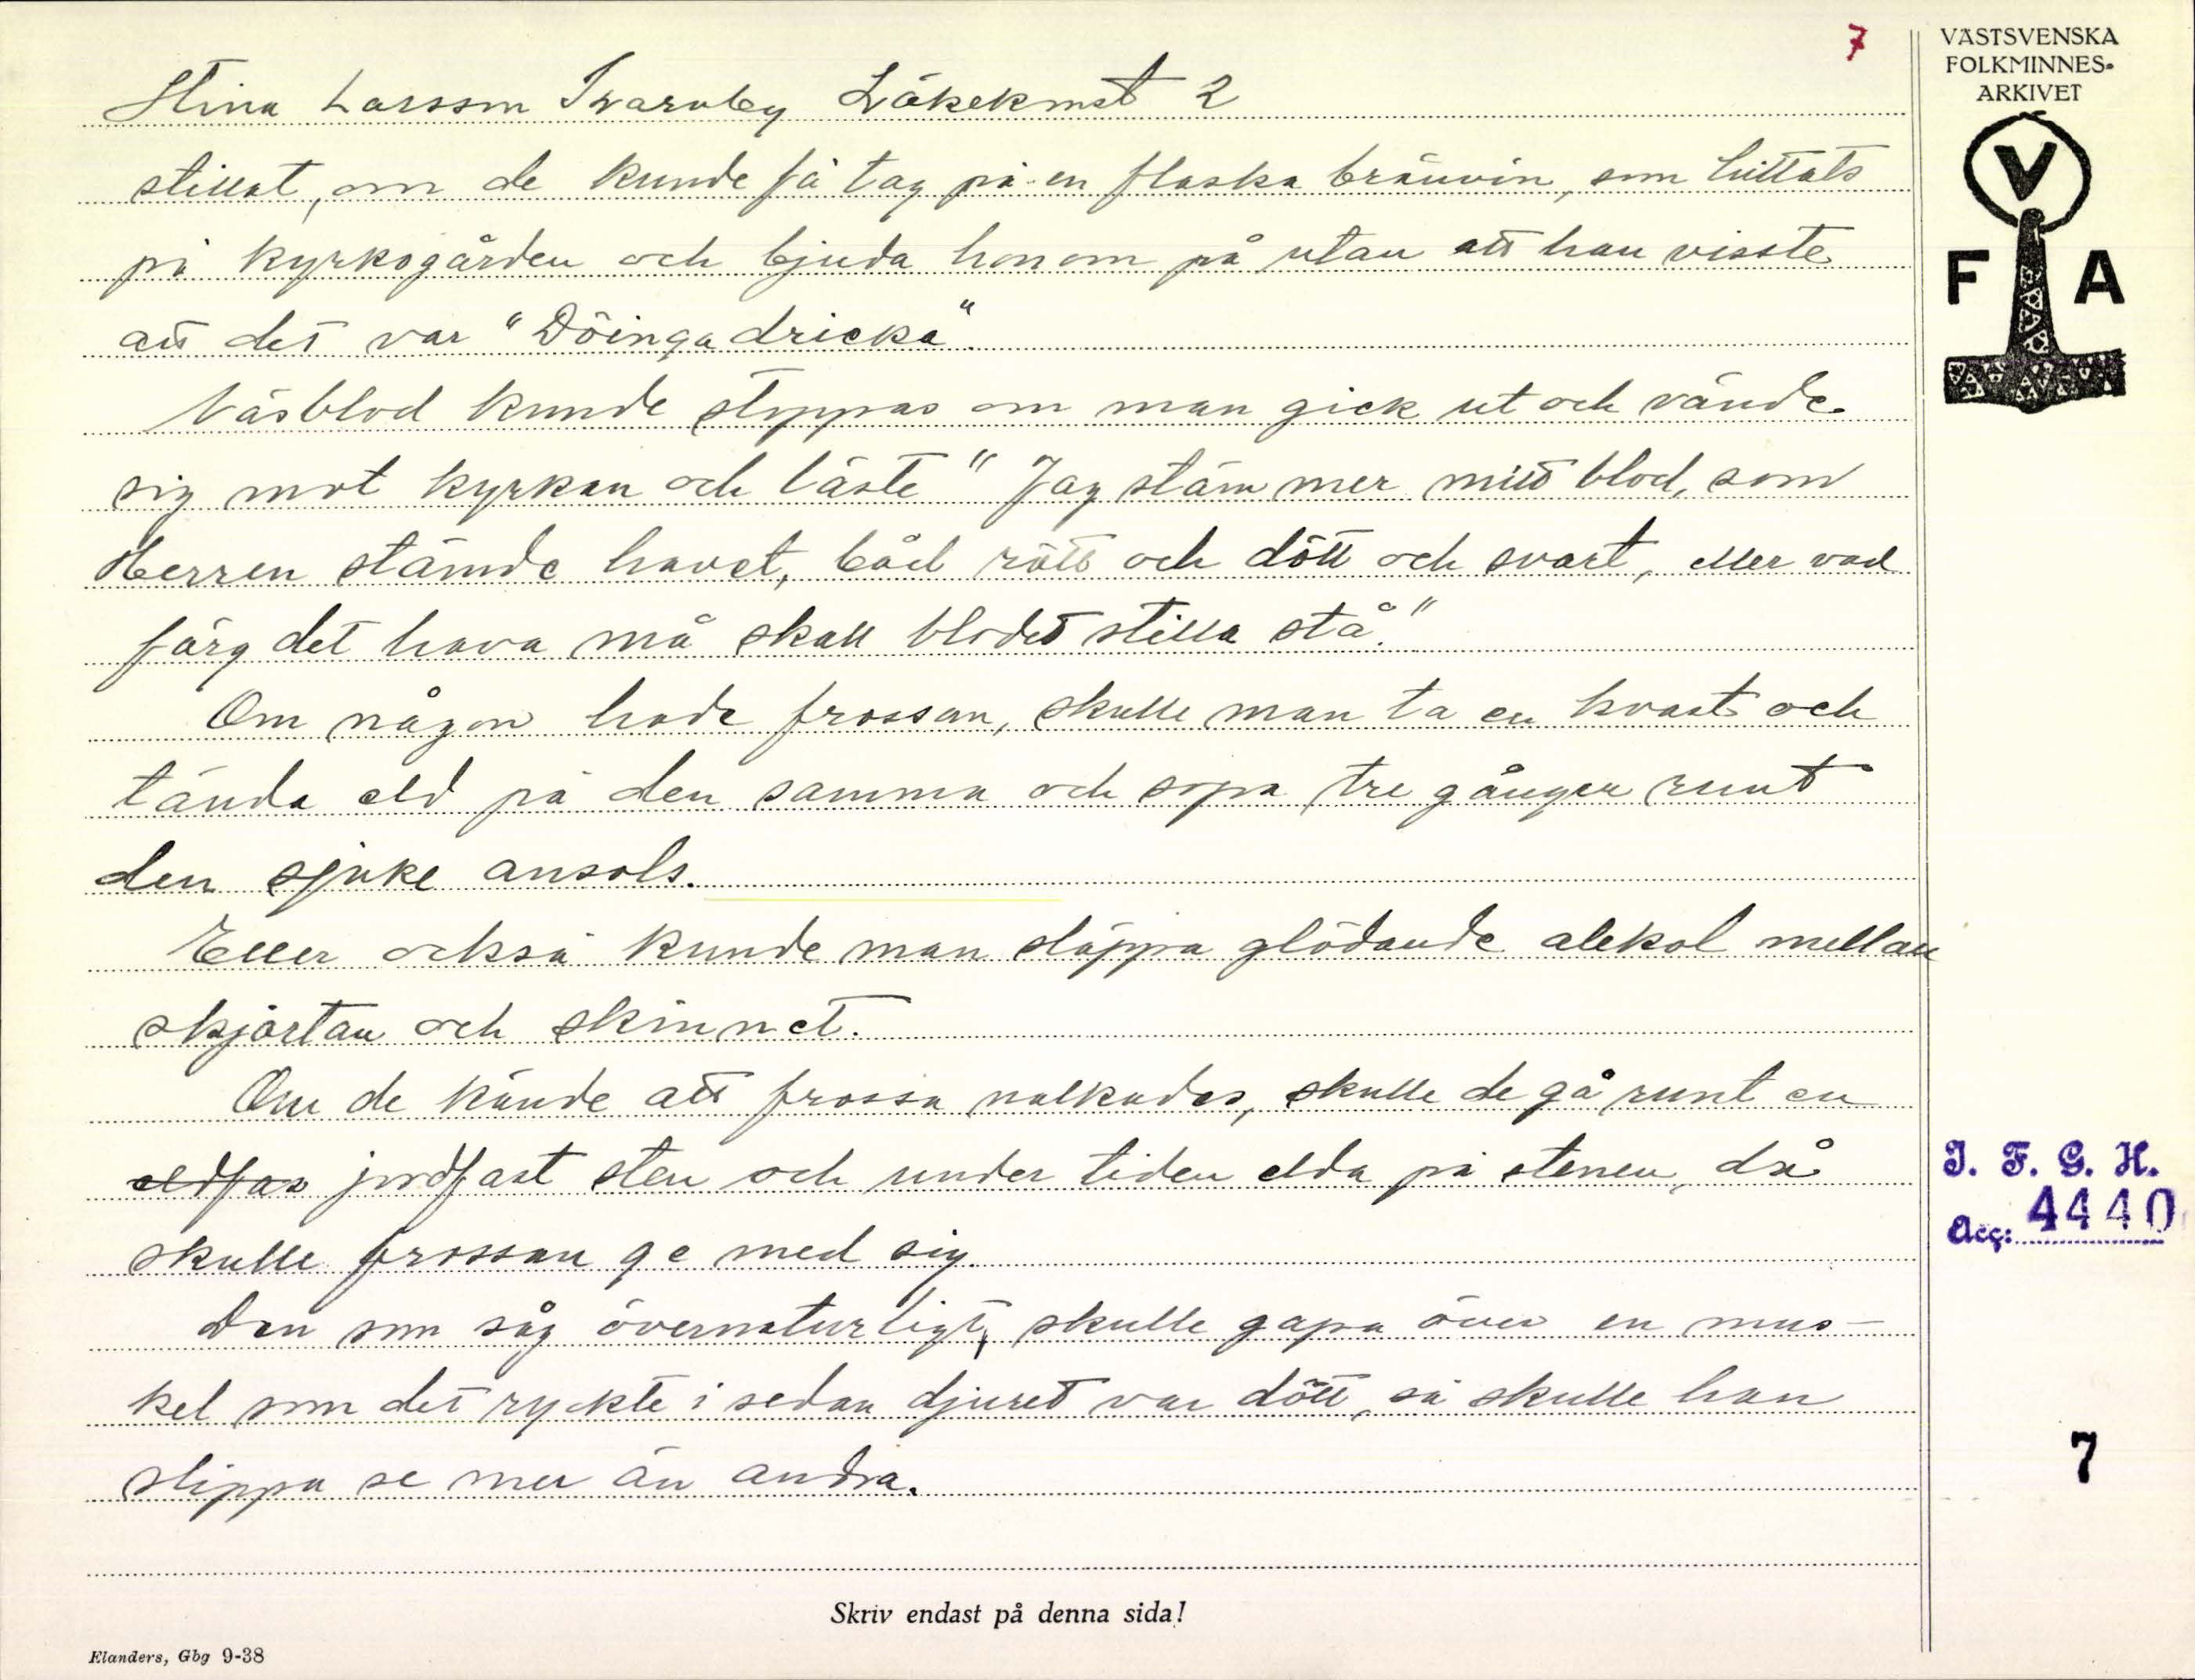 7
Stina Larsson Tvarnby Läkekonst 2
stillat, om de kunde få tag på en flaska brännvin, som hittats
på kyrkogården och bjuda honom på utan att han visste
att det var "Döingadricka".
Näsblod kunde stoppas om man gick ut och vände
sig mot kyrkan och läste "Jag stämmer mitt blod, som
Herren stämde havet, båd rött och dött och svart, eller vad
färg det hava må skall blodet stilla stå."
Om någon hade frossan, skulle man ta en kvast och
tända eld på den samma och sopa tre gånger runt
den sjuke ansols.
Eller också kunde man släppa glödande alekol mellan
skjortan och skinnet.
Om de kände att frossa nalkades, skulle de gå runt en
eldfas jordfast sten och under tiden elda på stenen, då
skulle frossan ge med sig.
Den som såg övernaturligt, skulle gapa över en mus-
kel som det ryckte i sedan djuret var dött, så skulle han
slippa se mer än andra.
Skriv endast på denna sida!
Elanders, Gbg 9-38
VÄSTSVENSKA
FOLKMINNES-
ARKIVET
V
F A
I. F. G. H.
Acc: 4440
7